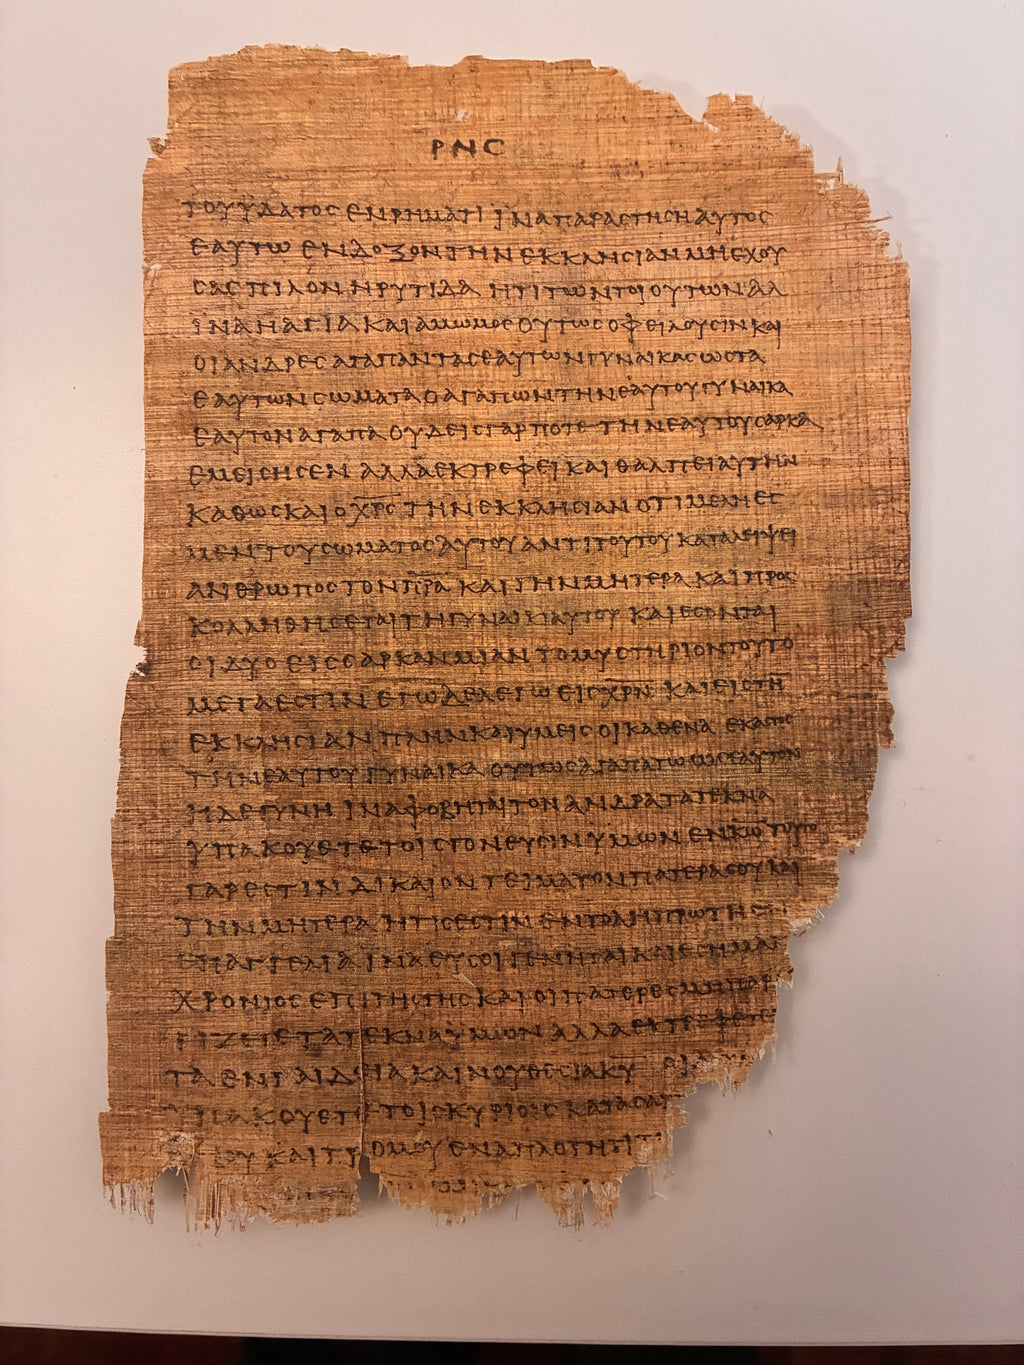 ΡΝϹ
ΤΟΥ ΥΔΑΤΟϹ ΕΝ ΡΗΜΑΤΙ ΙΝΑ ΠΑΡΑϹΤΗϹΗ ΑΥΤΟϹ
ΕΑΥΤΩ ΕΝΔΟΞΟΝ ΤΗΝ ΕΚΚΛΗϹΙΑΝ ΜΗ ΕΧΟΥ
ϹΑϹΠΙΛΟΝ Η ΡΥΤΙΔΑ Η ΤΙ ΤΩΝ ΤΟΙΟΥΤΩΝ ΑΛ
ΙΝΑ Η ΑΓΙΑ ΚΑΙ ΑΜΩΜΟϹ ΟΥΤΩϹ ΟΦΕΙΛΟΥϹΙΝ ΚΑΙ
ΟΙ ΑΝΔΡΕϹ ΑΓΑΠΑΝ ΤΑϹ ΕΑΥΤΩΝ ΓΥΝΑΙΚΑϹ ΩϹ ΤΑ
ΕΑΥΤΩΝ ϹΩΜΑΤΑ Ο ΑΓΑΠΩΝ ΤΗΝ ΕΑΥΤΟΥ ΓΥΝΑΙΚΑ
ΕΑΥΤΟΝ ΑΓΑΠΑ ΟΥΔΕΙϹ ΓΑΡ ΠΟΤΕ ΤΗΝ ΕΑΥΤΟΥ ϹΑΡΚΑ
ΕΜΕΙϹΗϹΕΝ ΑΛΛΑ ΕΚΤΡΕΦΕΙ ΚΑΙ ΘΑΛΠΕΙ ΑΥΤΗΝ
ΚΑΘΩϹ ΚΑΙ Ο Χ̅Ρ̅Ϲ̅ ΤΗΝ ΕΚΚΛΗϹΙΑΝ ΟΤΙ ΜΕΛΗ ΕϹ
ΜΕΝ ΤΟΥ ϹΩΜΑΤΟϹ ΑΥΤΟΥ ΑΝΤΙ ΤΟΥΤΟΥ ΚΑΤΑΛΕΙΨΕΙ
ΑΝΘΡΩΠΟϹ ΤΟΝ Π̅Ρ̅Α̅ ΚΑΙ ΤΗΝ ΜΗΤΕΡΑ ΚΑΙ ΠΡΟϹ
ΚΟΛΛΗΘΗϹΕΤΑΙ ΤΗ ΓΥΝΑΙΚΙ ΑΥΤΟΥ ΚΑΙ ΕϹΟΝΤΑΙ
ΟΙ ΔΥΟ ΕΙϹ ϹΑΡΚΑΝ ΜΙΑΝ ΤΟ ΜΥϹΤΗΡΙΟΝ ΤΟΥΤΟ
ΜΕΓΑ ΕϹΤΙΝ ΕΓΩ ΔΕ ΛΕΓΩ ΕΙϹ Χ̅Ρ̅Ν̅ ΚΑΙ ΕΙϹ ΤΗ
ΕΚΚΛΗϹΙΑΝ ΠΛΗΝ ΚΑΙ ΥΜΕΙϹ ΟΙ ΚΑΘ ΕΝΑ ΕΚΑϹΤΟϹ
ΤΗΝ ΕΑΥΤΟΥ ΓΥΝΑΙΚΑ ΟΥΤΩϹ ΑΓΑΠΑΤΩ ΩϹ ΕΑΥΤΟΝ
Η ΔΕ ΓΥΝΗ ΙΝΑ ΦΟΒΗΤΑΙ ΤΟΝ ΑΝΔΡΑ ΤΑ ΤΕΚΝΑ
ΥΠΑΚΟΥΕΤΕ ΤΟΙϹ ΓΟΝΕΥϹΙΝ ΥΜΩΝ ΕΝ Κ̅Ω̅ ΤΟΥΤΟ
ΓΑΡ ΕϹΤΙΝ ΔΙΚΑΙΟΝ ΤΕΙΜΑ ΤΟΝ ΠΑΤΕΡΑ ϹΟΥ ΚΑΙ
ΤΗΝ ΜΗΤΕΡΑ ΗΤΙϹ ΕϹΤΙΝ ΕΝΤΟΛΗ ΠΡΩΤΗ
ΕΠΑΓΓΕΛΙΑ ΙΝΑ ΕΥ ϹΟΙ ΓΕΝΗΤΑΙ ΚΑΙ ΕϹΗ ΜΑΚ
ΧΡΟΝΙΟϹ ΕΠΙ ΤΗϹ ΓΗϹ ΚΑΙ ΟΙ ΠΑΤΕΡΕϹ ΜΗ ΠΑΡ
ΓΙΖΕΤΕ ΤΑ ΤΕΚΝΑ ΥΜΩΝ ΑΛΛΑ ΕΚΤΡΕΦΕΤΕ
ΤΑ ΕΝ ΠΑΙΔΕΙΑ ΚΑΙ ΝΟΥΘΕϹΙΑ Κ̅Υ̅
ΥΠΑΚΟΥΕΤΕ ΤΟΙϹ ΚΥΡΙΟΙϹ ΚΑΤΑ ϹΑΡ
ΚΑΙ ΤΡΟΜΟΥ ΕΝ ΑΠΛΟΤΗΤΙ